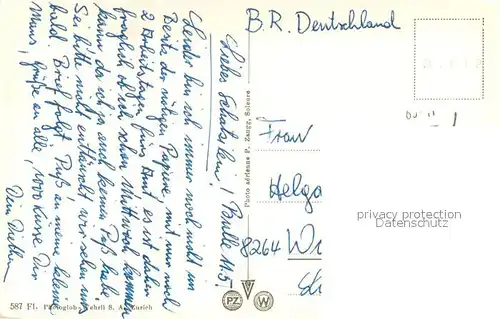 B. R. Deutschland
Balle 11.5.
Leider bin ich immer noch nicht im
Besitz der nötigen Papiere, mit nur noch
2 Arbeitstagen fürs Amt, es ist daher
fraglich ob ich schon Mittwoch kommen
kann da ich auch keinen Paß habe.
Sei bitte nicht enttäuscht wir sehen uns
bald. Brief folgt. Gruß an meine kleine
Maus, Grüße an alle, 1000 Küsse Dir
Dein
Photo aérienne P. Zaugg, Soleure
Frau
Helga
privacy protection
Datenschutz
8264 W
587 Fl. Photoglob-Wehrli S. A. Zurich
PZ
W